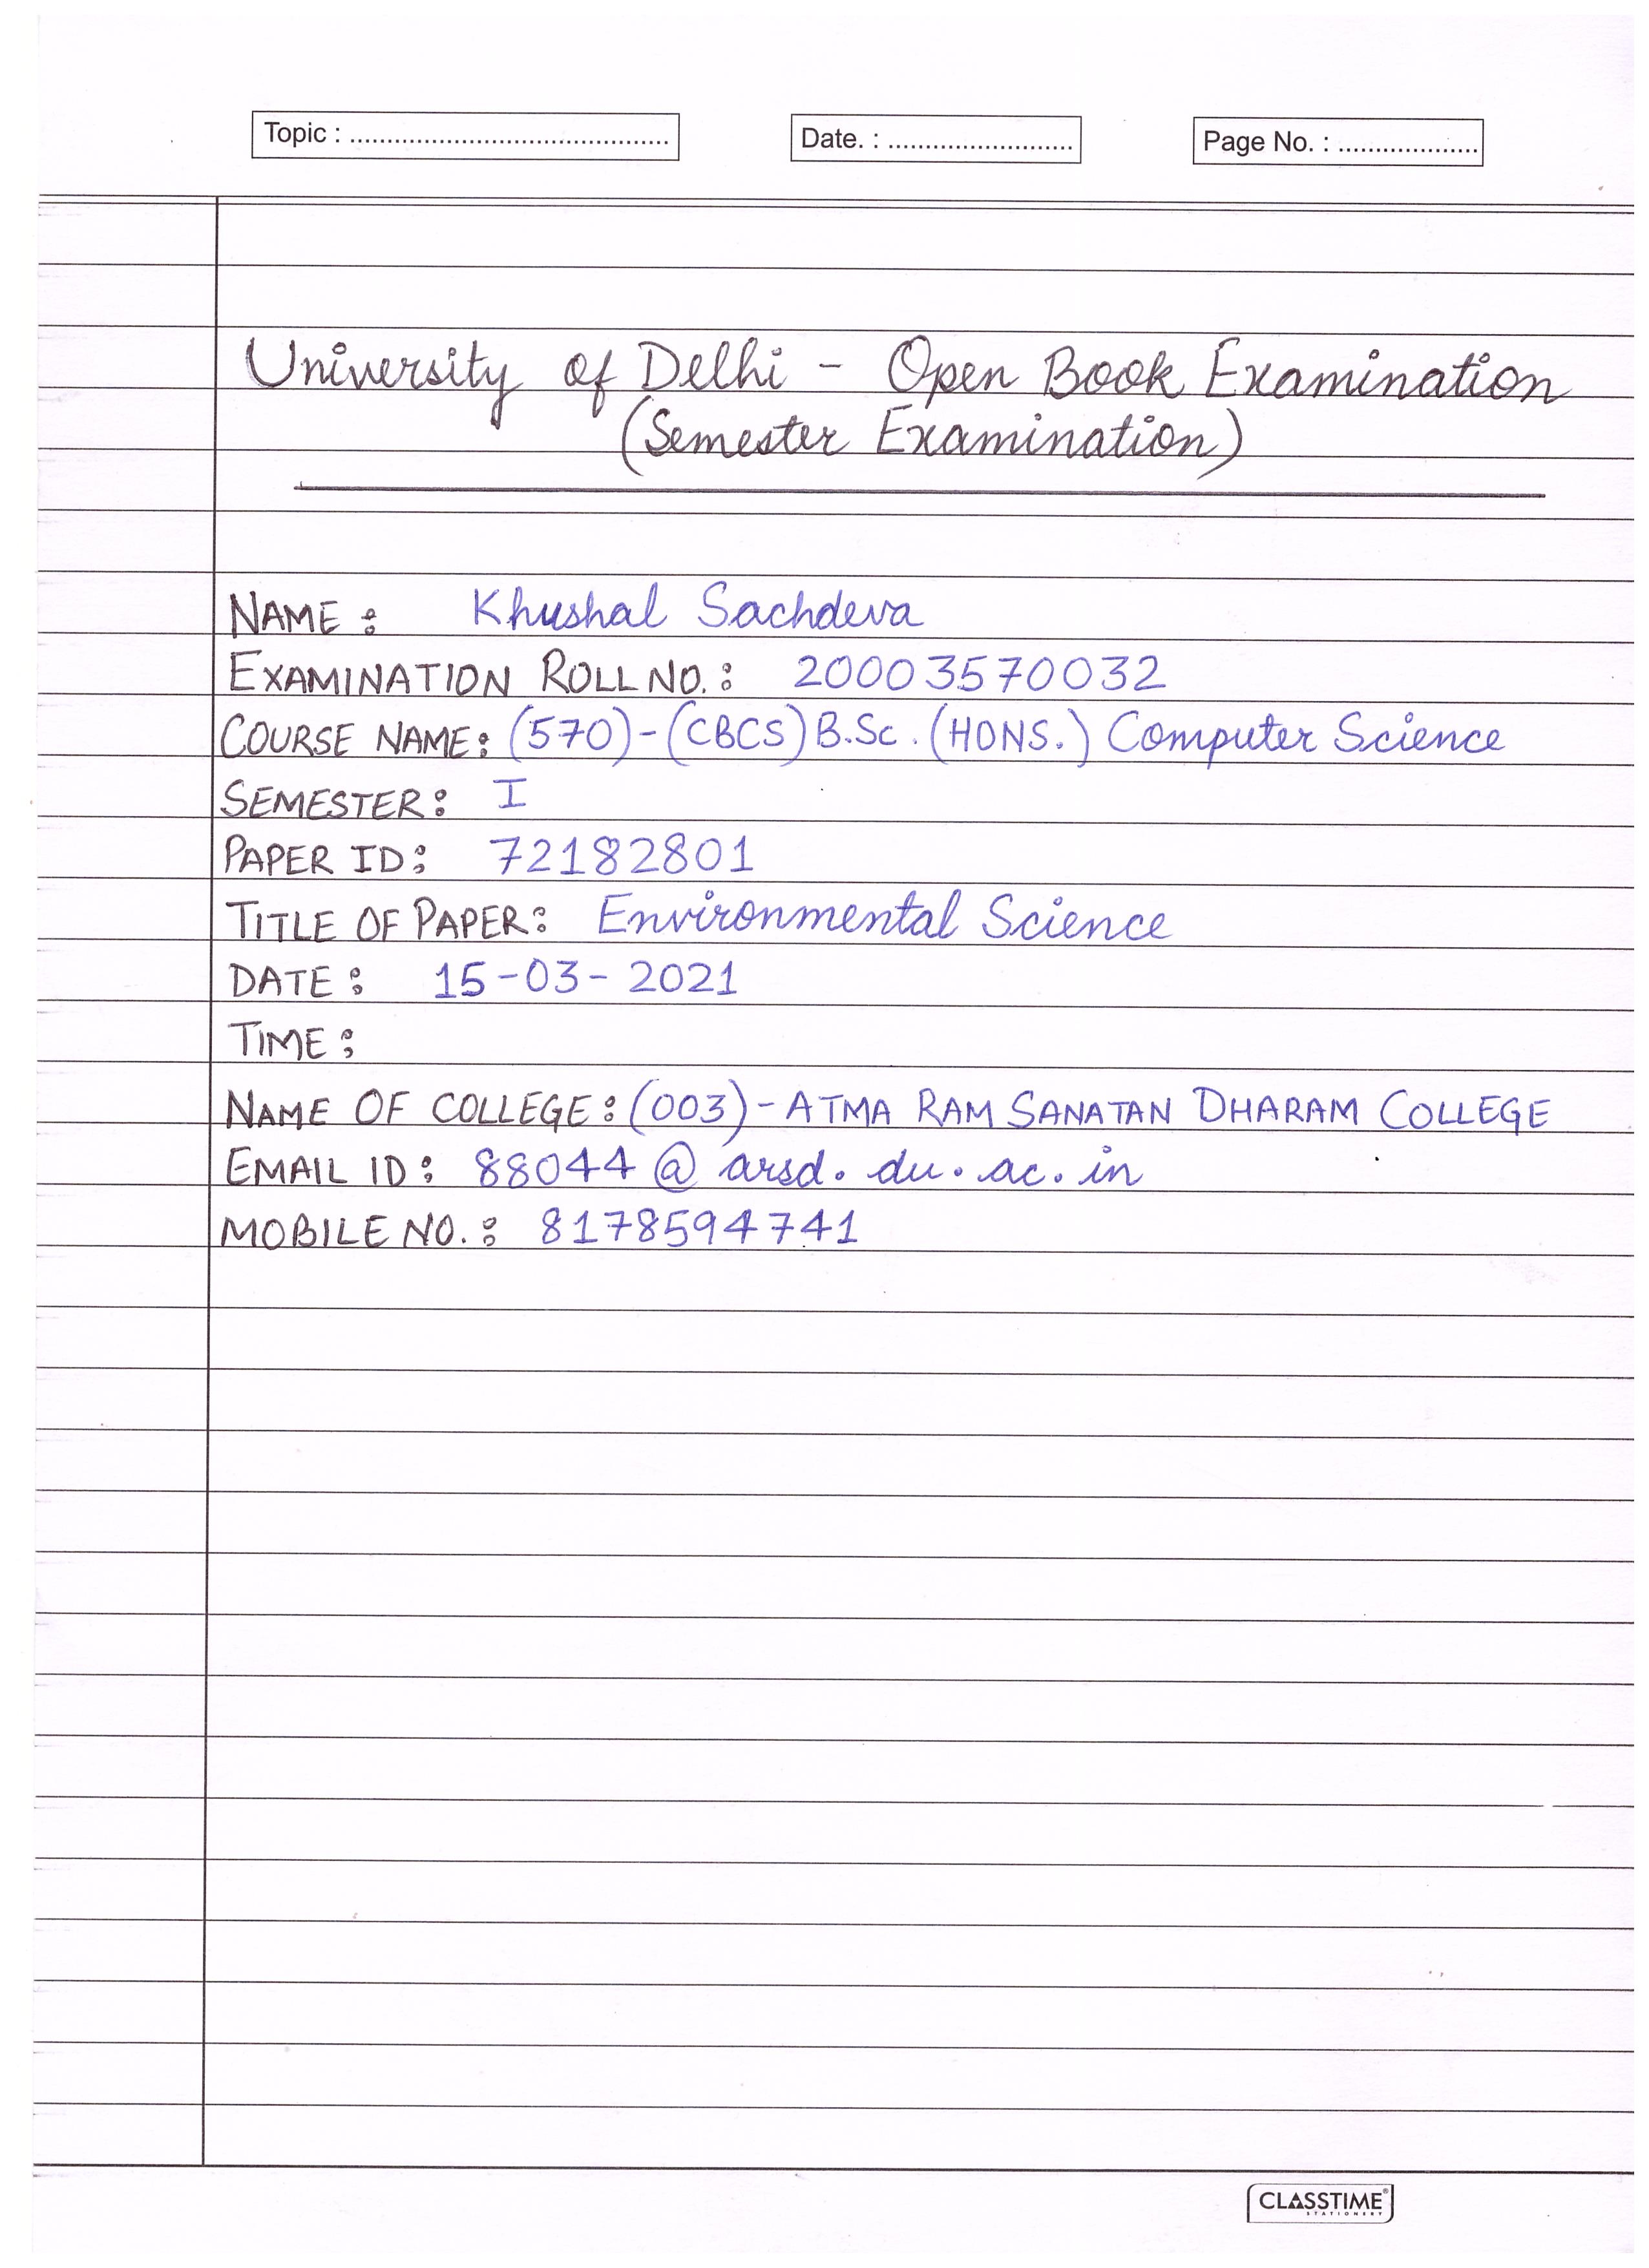 Topic : ............................................
Date. : .........................
Page No. : ...................
University of Delhi - Open Book Examination
(Semester Examination)
NAME : Khushal Sachdeva
EXAMINATION ROLL NO. : 20003570032
COURSE NAME: (570)-(CBCS) B.Sc. (HONS.) Computer Science
SEMESTER: I
PAPER ID: 72182801
TITLE OF PAPER: Environmental Science
DATE : 15-03-2021
TIME :
NAME OF COLLEGE: (003)-ATMA RAM SANATAN DHARAM COLLEGE
EMAIL ID: 88044@arsd.du.ac.in
MOBILE NO. : 8178594741
CLASSTIME
STATIONERY